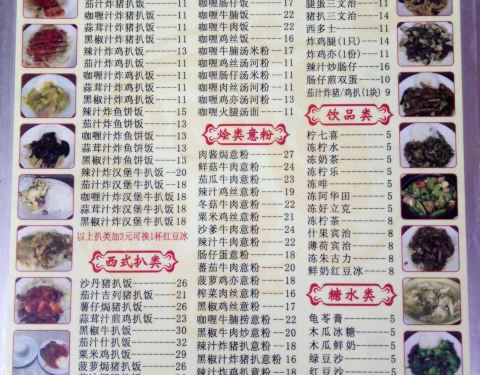 茄汁炸猪扒饭 11
咖喱炸猪扒饭 11
蒜茸汁炸猪扒饭 11
黑椒汁炸猪扒饭 11
辣汁炸鸡扒饭 11
茄汁炸鸡扒饭 11
咖喱炸鸡扒饭 11
蒜茸汁炸鸡扒饭 11
黑椒汁炸鸡扒饭 11
辣汁炸鱼饼饭 15
茄汁炸鱼饼饭 13
咖喱炸鱼饼饭 13
蒜茸炸鱼饼饭 13
黑椒炸鱼饼饭 13
辣汁炸汉堡牛扒饭 20
茄汁炸汉堡牛扒饭 18
咖喱汁炸汉堡牛扒饭 18
蒜茸汁炸汉堡牛扒饭 18
黑椒汁炸汉堡牛扒饭 18
以上扒类加3元可换1杯红豆冰
西式扒类
沙丹猪扒饭 26
茄汁吉列猪扒饭 26
薯仔焗猪扒饭 26
蒜茸汁煎鸡扒饭 21
黑椒牛扒饭 32
茄汁什扒饭 32
粟米鸡扒饭 29
菠萝焗猪扒饭
咖喱肠仔饭 11
咖喱牛腩饭
咖喱牛肉饭
咖喱鸡丝饭
咖喱牛腩汤米粉
咖喱肠仔汤米粉
咖喱鸡丝汤河粉
咖喱牛肉汤河粉
咖喱鸡亦汤河粉
咖喱火腿汤面 11
烩类意粉
肉酱焗意粉 27
鲜菇牛肉意粉 24
茄瓜牛肉意粉 24
辣汁鸡丝意粉 24
冬菇牛肉意粉 24
粟米鸡丝意粉 24
沙爹牛肉意粉 24
辣汁牛肉意粉 24
肠仔蛋意粉 20
蕃茄牛肉意粉 20
菠萝鸡亦意粉 20
榨菜肉丝意粉 20
咖喱牛腩捞意粉 20
黑椒牛肉炒意粉 20
辣汁炸猪扒意粉 22
黑椒汁炸猪扒意粉 16
腿蛋三文治
猪扒三文治 11
西多士 11
炸鸡腿(1只) 14
炸鸡亦(1份) 11
辣汁炒肠仔 16
肠仔煎双蛋 10
茄汁炸猪/鸡扒(1块) 9
饮品类
柠七喜 5
冻柠水 5
冻奶茶 5
冻柠乐 5
冻啡 5
冻阿华田 5
冻好立克 5
冻柠茶 5
什果宾治 5
薄荷宾治 5
冻朱古力 5
鲜奶红豆冰 5
糖水类
龟苓膏 5
木瓜冰糖 5
木瓜鲜奶 5
绿豆沙 5
红豆沙 5